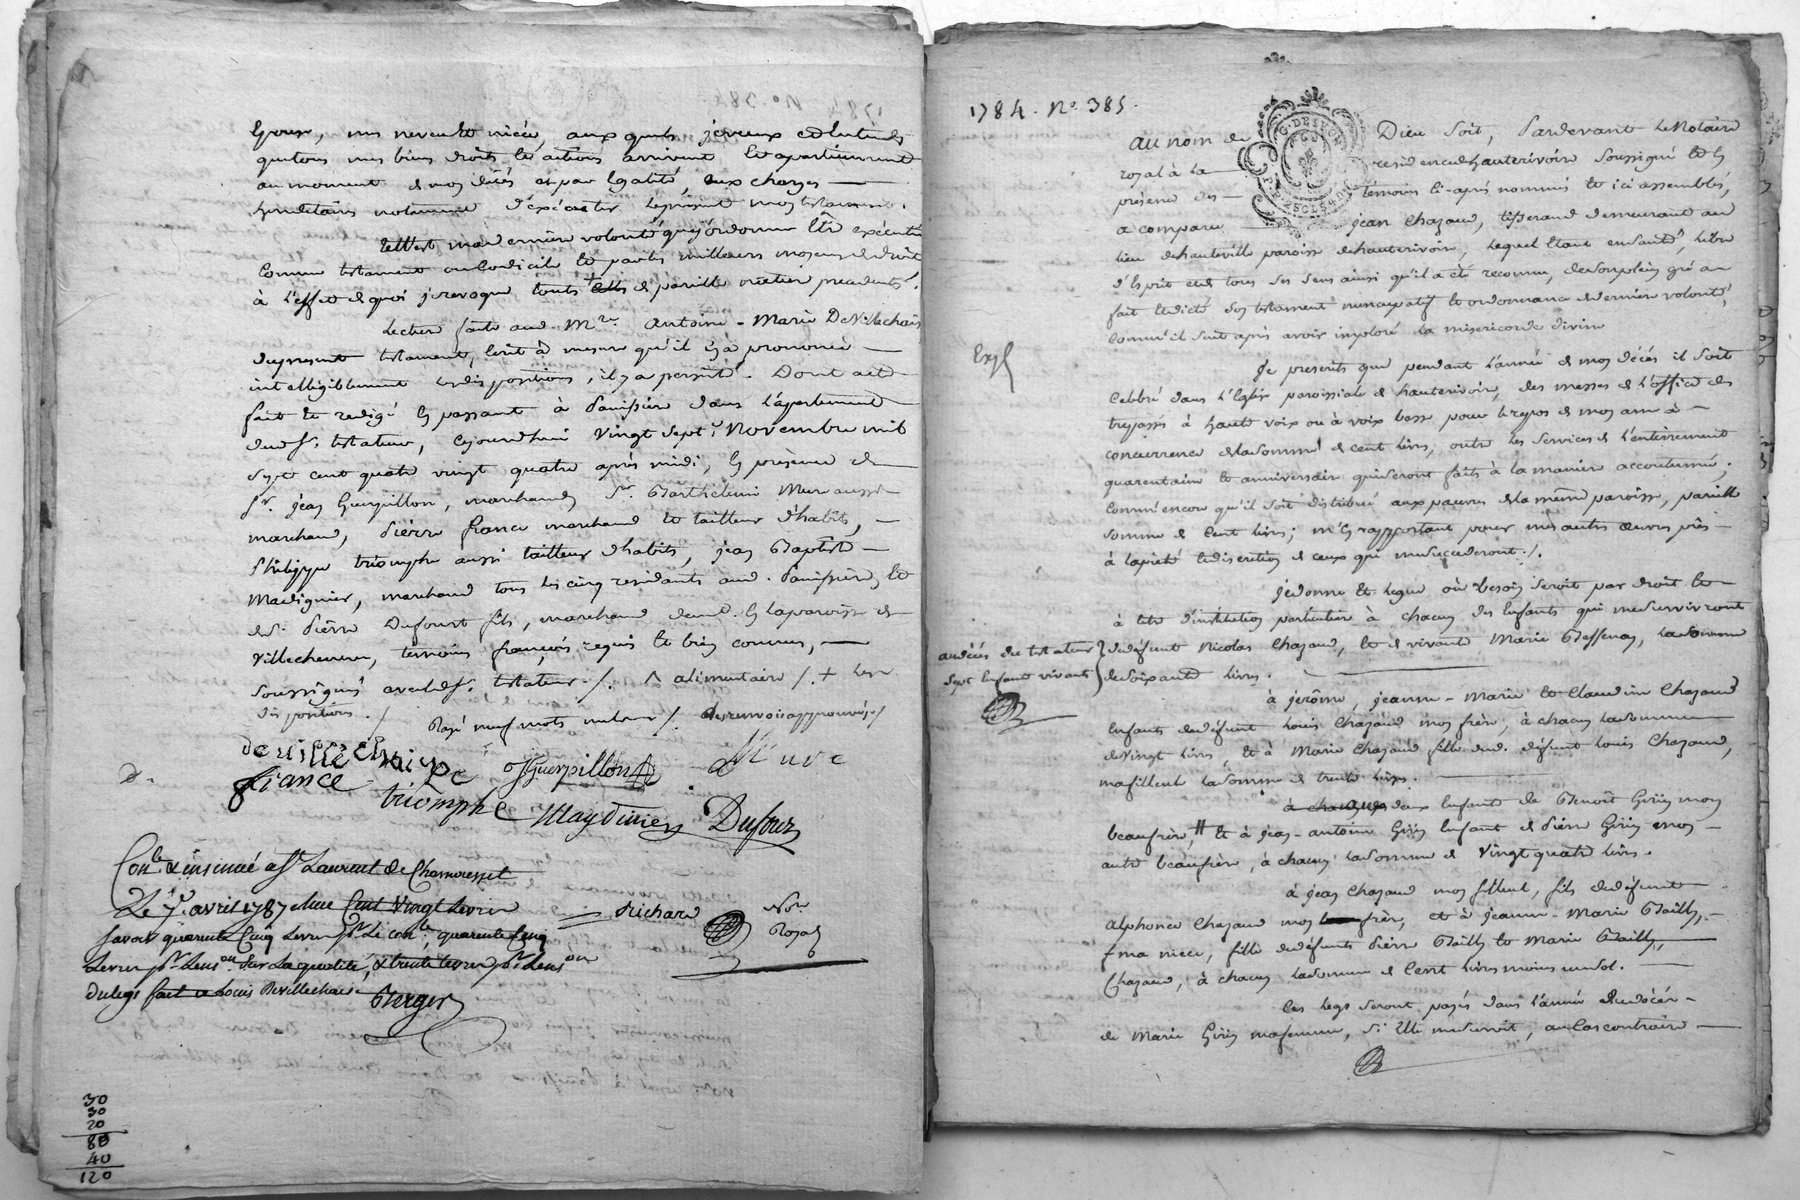 mes neveu et niéce, aux quels je veux et entends
que tous mes biens droits et actions arrivent et apartiennent
au moment de mon décés et par égalité, aux charges
héréditaires notamment d'éxécuter le présent mon testament.
Telle est ma derniére volonté que j'ordonne être exécutée
comme testament ou codicile et par les meilleurs moyens de droit,
à l'effet de quoi je revoque touts + de pareille matiére précédents.
Lecture faite aud. Mre. Antoine-Marie DeVillechaise
du present testament, écrit à mesure qu'il en à prononcé
intelligiblement les dispositions, il y a persisté. Dont acte
fait et redigé et passant à Panissiére dans l'apartement
dud. sr. testateur, cejourdhui vingt sept novembre mil
sept cent quatre vingt quatre aprés midi, en présence de
sr. jean Guerpillon, marchand, sr. Barthelemi Meuve aussi
marchand, Piérre france marchand et tailleur d'habits,
Philippe triomphe aussi tailleur d'habits, jean Baptiste
Madignier, marchand tous les cinq residants aud. Panissiére, et
de sr. Piérre Dufourt fils, marchand demt. en la paroisse de
Villechenéve, temoins françois requis et bien connus,
soussignés avec led. sr. testateur ./. ^ alimentaire /. + les
dispositions ./ Rayé neuf mots nuls ./. renvois approuvés ./
devillechaise Guerpillon Meuve
france triomphe Madinier Dufour
Conlé & insinué a St Laurent de Chamousset
Le 7 avril 1787 Reçu Cent Vingt Livres
savoir quarente Cinq Livres pr Le conlle, quarente Cinq
Livres pr Linson sur La qualité, & trente livres pr Linson
du legs fait a Louis Devillechaise
Berger
Richard Nore
Royal
30
30
20
80
40
120
1784. No. 385.
G. DE LYON
Au nom de Dieu soit, Pardevant le Notaire
royal à la residence d'hauterivoire soussigné et en
présence des témoins ci-aprés nommés et ici assemblés,
a comparu jean Chazaud, tisserand demeurant au
lieu de hauteville paroisse de hauterivoire, lequel étant en santé, libre
d'esprit et de tous ses sens ainsi qu'il a été reconnu, de son plein gré a
fait et dicté son testament nuncupatif et ordonnance de derniére volonté,
comm'il suit aprés avoir imploré la misericorde divine
Expé
Je prescris que pendant l'année de mon décés il soit
célébré dans l'église paroissiale de hauterivoire, des messes de l'office des
trepassés à haute voix ou à voix basse pour le repos de mon ame à
concurrence de la somme de cent livres, outre les services de l'enterrement
quarentaine et anniversaire qui seront faits à la maniére accoutumée;
comm'encore qu'il soit distribué aux pauvres de la même paroisse, pareille
somme de cent livres; m'en rapportant pour mes autres œuvres pies
à la piété et discretion de ceux qui me succederont ./.
je donne et legue où besoin seroit par droit et
à titre d'institution particuliére à chacun des enfants qui me survivront
du défunt Nicolas Chazaud, et de vivante Marie Bessenay, la somme
de soixante livres.
au décés du testateur
sept enfants vivants
à jerôme, jeanne-Marie et Claudine Chazaud
enfants du défunt Louis Chazaud mon frére, à chacun la somme
de vingt livres, et à Marie Chazaud fille dud. défunt Louis Chazaud,
ma filleule la somme de trente livres.
à chacun deux enfants de Benoit Giriy mon
beaufrére, # et à jean-antoine Giriy enfant de Piérre Giriy mon
autre beaufrére, à chacun la somme de vingt quatre livres.
à jean Chazaud mon filleul, fils du défunt
Alphonce Chazaud mon frére, et à jeanne-Marie Bailly,
+ ma niéce, fille de défunts Piérre Bailly et Marie
Chazaud, à chacun la somme de cent livres moins un sol.
Ces legs seront payés dans l'année du décés
de Marie Giriy ma femme, si elle me survit, au cas contraire